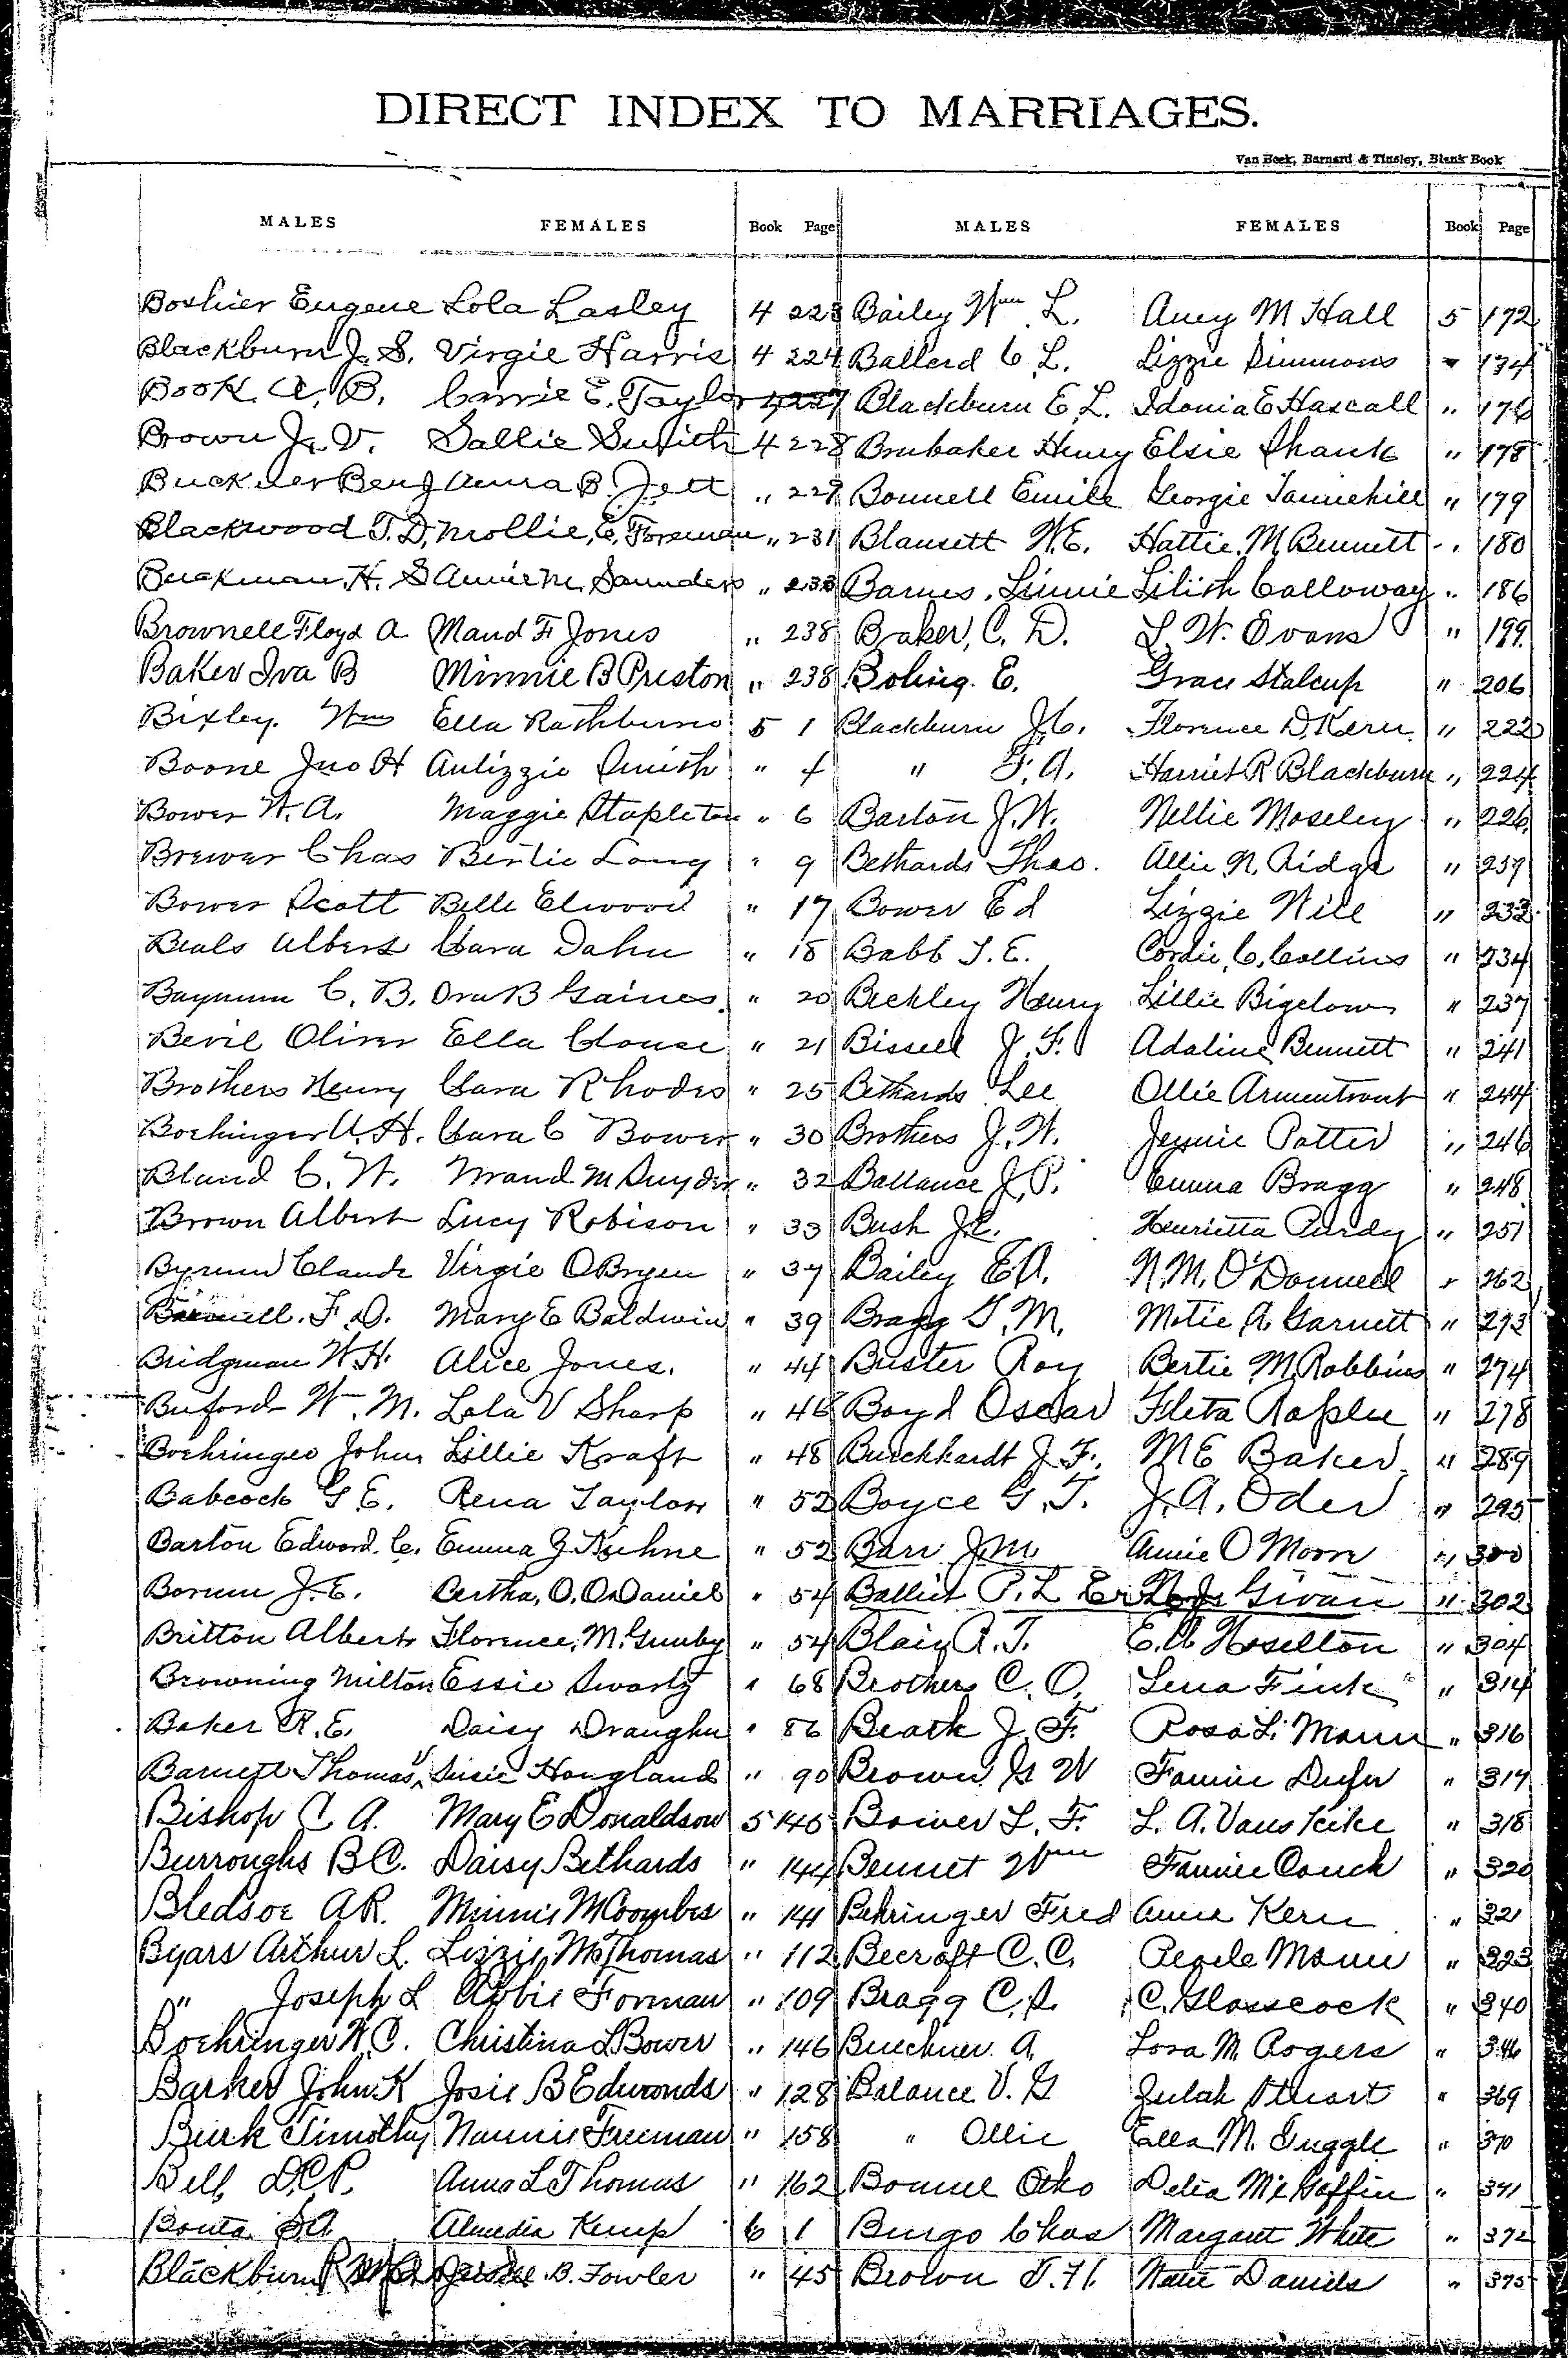 DIRECT INDEX TO MARRIAGES.
Van Beek, Barnard & Tinsley, Blank Book
MALES FEMALES Book Page MALES FEMALES Book Page
Boshier Eugene Lola Lasley 4 223 Bailey Wm L. Aucy M Hall 5 172
Blackburn J. S. Virgie Harris 4 224 Ballard C. L. Lizzie Simmons " 174
Book A. B. Carrie E. Taylor 4 227 Blackburn E. L. Idonia E Hascall " 176
Brown J. V. Sallie Smith 4 228 Brubaker Henry Elsie Shank " 178
Buckner Benj Anna B. Jett " 229 Bonnell Emile Georgie Tannehill " 179
Blackwood T. D. Mollie E. Foreman " 231 Blansett W. E. Hattie M. Bennett " 180
Buckman H. S Annie M. Saunders " 233 Barnes, Linnie Lilith Calloway " 186
Brownell Floyd A Maud F Jones " 238 Baker, C. D. L. W. Evans " 199
Baker Iva B Minnie B Preston " 238 Boling E. Grace Stalcup " 206
Bixley. Wm Ella Rathburne 5 1 Blackburn J. C. Florence D. Kern " 222
Boone Jno H Anlizzie Smith " 4 " F. A. Harriet R Blackburn " 224
Bower W. A. Maggie Stapleton " 6 Barton J. W. Nellie Moseley " 226
Brewer Chas Bertie Long " 9 Bethards Thos. Allie N. Ridge " 239
Bower Scott Belle Elwood " 17 Bower Ed Lizzie Will " 232
Beals Albert Clara Dahn " 18 Babb T. E. Cordie C. Collins " 234
Baynum C. B. Ora B Gaines " 20 Beckley Henry Lillie Bigelow " 237
Bevil Oliver Ella Clouse " 21 Bissell J. F. Adaline Bennett " 241
Brothers Henry Clara Rhodes " 25 Bethards Lee Ollie Armentrout " 244
Boehinger A. H. Clara C Bower " 30 Brothers J. W. Jennie Potter " 246
Bland C. W. Maud M Snyder " 32 Ballance J. P. Emma Bragg " 248
Brown Albert Lucy Robison " 33 Bush J. E. Henrietta Purdy " 251
Byrum Claude Virgie OBryen " 37 Bailey E. A. N. M. O'Donnell " 262
F. D. Mary E Baldwin " 39 Bragg G. M. Motie A. Garnett " 273
Bridgman W. H. Alice Jones. " 44 Buster Roy Bertie M. Robbins " 274
Buford Wm. M. Lola V Sharp " 46 Boyd Oscar Fleta Raplee " 278
Boehringer John Lillie Kraft " 48 Burckhardt J. F. M E Baker " 289
Babcock G E. Rena Taylor " 52 Boyce G. T. J. A. Oder " 295
Barton Edward C. Emma J Kuhne " 52 Barr J M Annie O Moore " 300
Borum J. E. Bertha, O. O.Daniel " 54 Balliet P. L Givan " 302
Britton Albert Florence, M. Gunby " 54 Blair R. T. E. A Hoselton " 304
Browning Milton Essie Swartz " 68 Brothers C. O. Lena Fink " 314
Baker R. E. Daisy Draughn " 86 Beath J. F. Rosa L. Mann " 316
Barnett Thomas V Susie Hougland " 90 Brown G W Fannie Dufer " 317
Bishop C A. Mary E Donaldson 5 140 Bower L. F. L. A. Vanskike " 318
Burroughs B C. Daisy Bethards " 144 Bennet Wm Fannie Couch " 320
Bledsoe A R. Minnie M Coombes " 141 Behringer Fred Anna Kern " 321
Byars Arthur L. Lizzie M Thomas " 112 Becraft C. C. Pearle Mann " 323
" Joseph L Abbie Forman " 109 Bragg C. S. C. Glasscock " 340
Boehringer W. C. Christina L Bower " 146 Buechner A. Lora M. Rogers " 346
Barker John K Josie B Edmonds " 128 Balance V. G Zulah Stuart " 369
Burk Timothy Nannie Freeman " 158 " Ollie Ella M. Tuggle " 370
Bell D. P. Anna L Thomas " 162 Bonnel Otho Delia McGoffin " 371
Bonta S A Almedia Kemp 6 1 Burgo Chas Margaret White " 372
Blackburn B. Fowler " 45 Brown T. H. Katie Daniels " 375